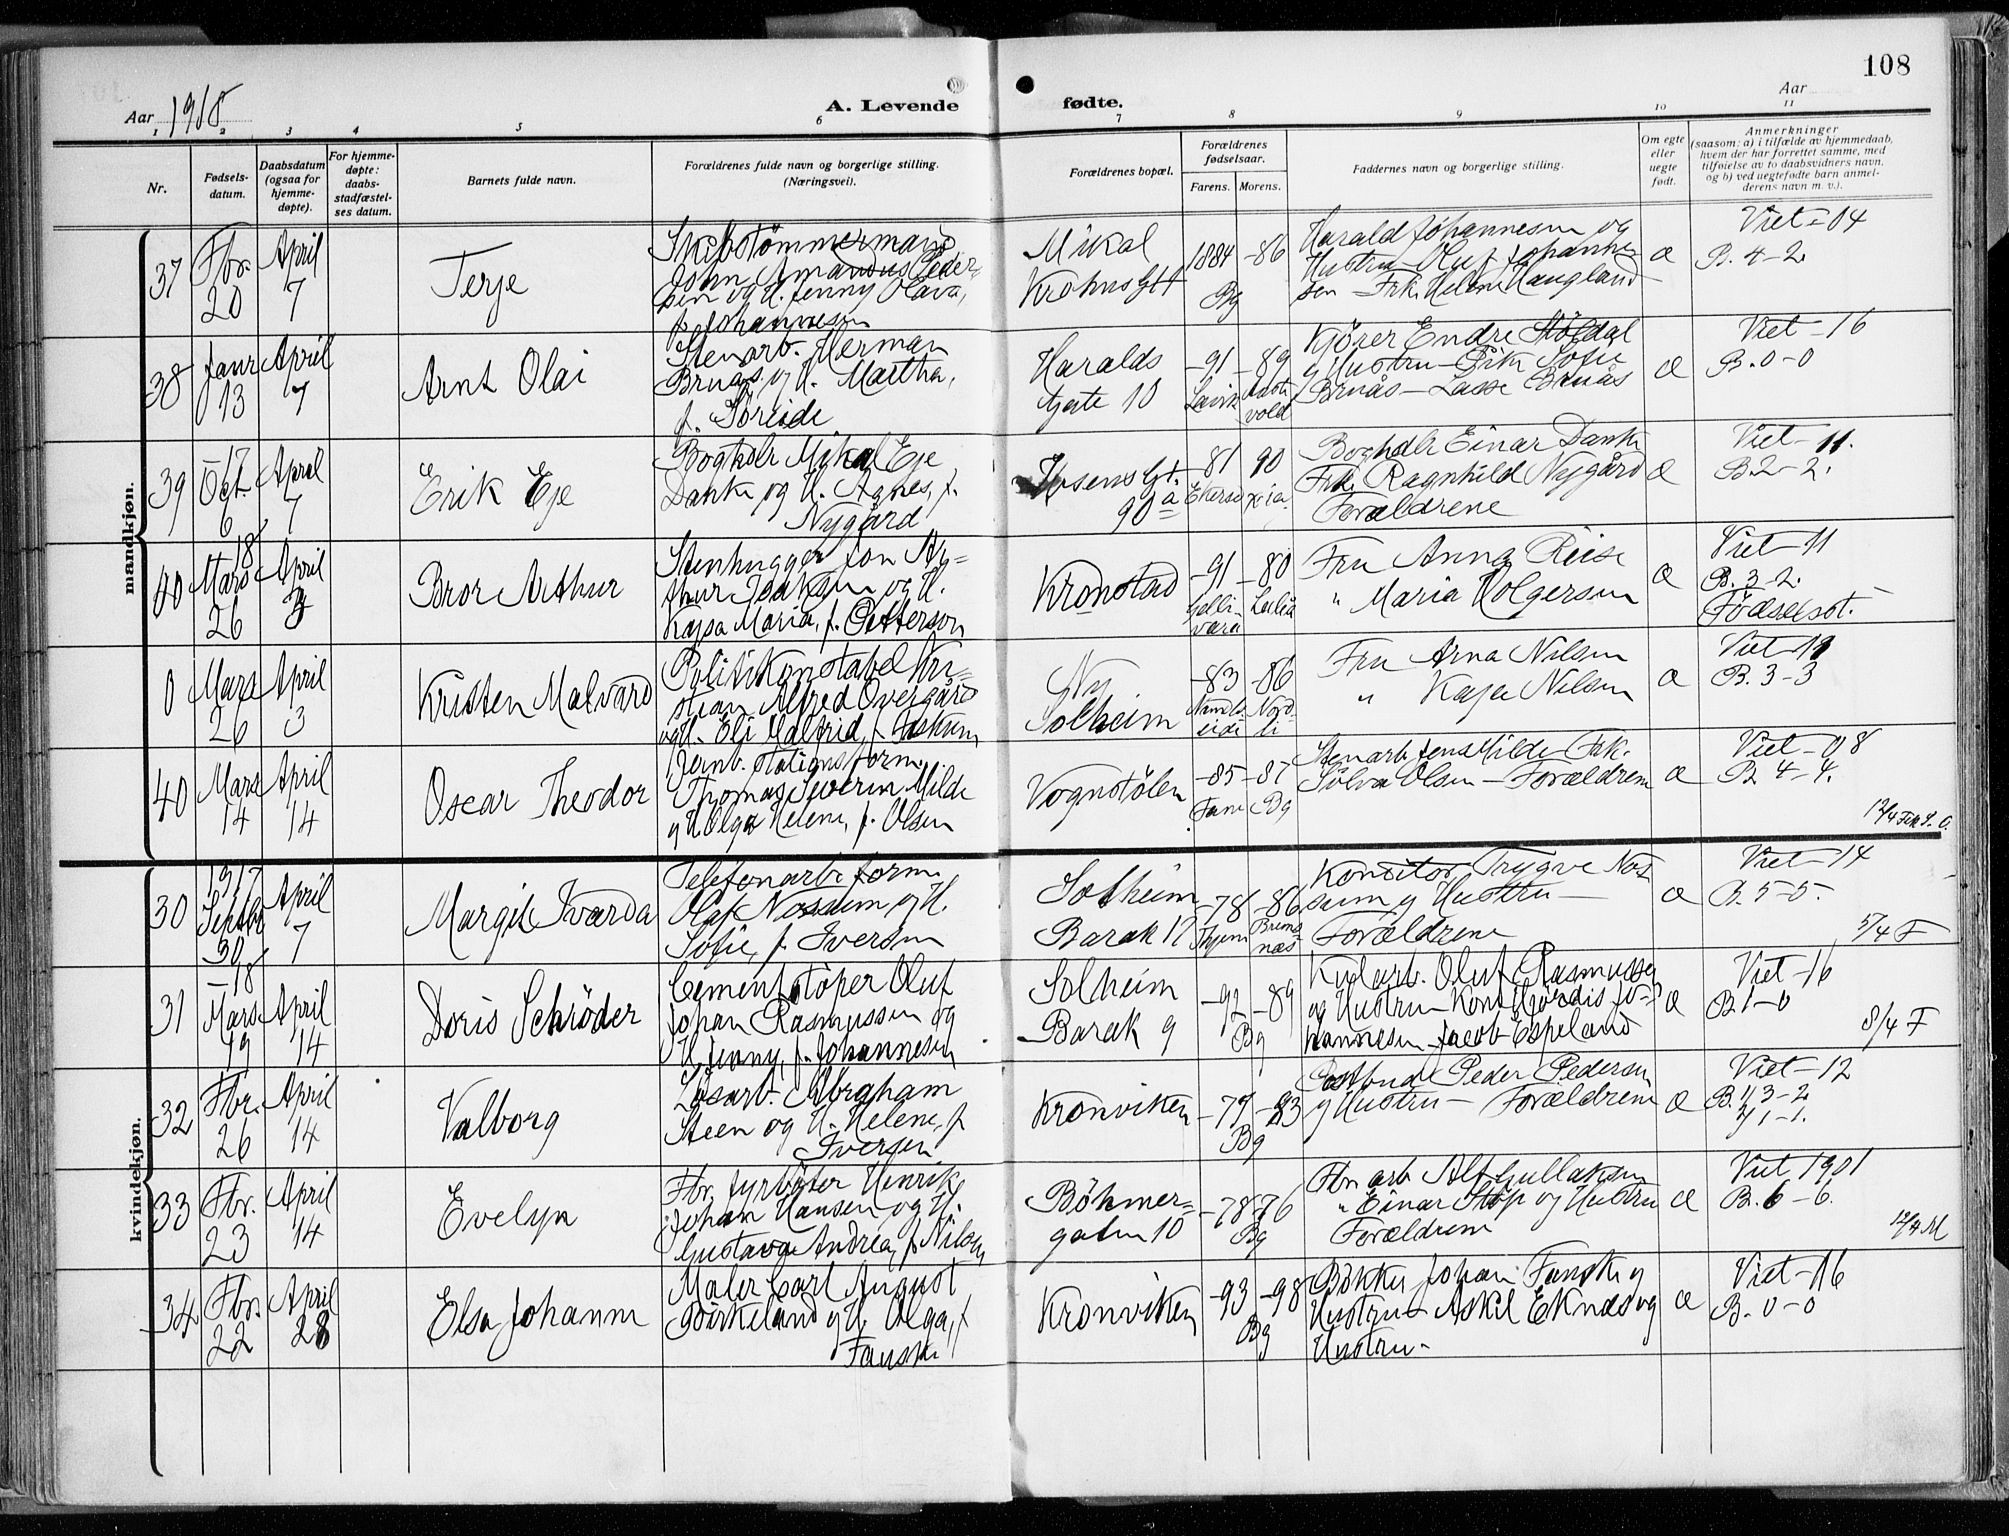 108
Aar 1918
A. Levende
fødte.
Aar
1 2 3 4 5 6 7 8 9 10 11
Nr.
Fødsels-
datum.
Daabsdatum
(ogsaa for
hjemme-
døpte).
For hjemme-
døpte:
daabs-
stadfæstel-
ses datum.
Barnets fulde navn.
Forældrenes fulde navn og borgerlige stilling.
(Næringsvei).
Forældrenes bopæl.
Forældrenes
fødselsaar.
Farens. Morens.
Faddernes navn og borgerlige stilling.
Om egte
eller
uegte
født.
Anmerkninger
(saasom: a) i tilfælde av hjemmedaab,
hvem der har forrettet samme, med
tilføielse av to daabsvidners navn,
og b) ved uegtefødte barn anmel-
derens navn m. v.).
mandkjøn.
37
Fbr.
20
April
7
Terje
Skibstømmermand
John Amandus Peder-
sen og H. Jenny Olava,
f. Johannesen
Mikal
Krohns Gt
1884 -86
Bg
Harald Johannesen og
Hustru - Oluf Johannes-
sen - Frk. Helene Haugland
æ
Viet - 04
B. 4-2.
38
Janr
13
April
7
Arnt Olai
Stenarb. Herman
Brnås og H. Martha,
f. Søreide
Haralds
gate 10
-91 -89
Lavik
vold
Kjører Endre Støldal
og Hustru - Pike Sofie
Brnås - Lasse Brnås
æ
Viet - 16
B. 0-0
39
-17
Oct.
6
April
7
Erik Eje
Boghdlr Mikal Eje
Danke og H. Agnes, f.
Nygård
Ibsens Gt.
90 a
81 90
Boghdlr Einar Danke
Frk. Ragnhild Nygård
Forældrene
æ
Viet - 11.
B. 2-2.
40
18
Mars
26
April
3
Bror Arthur
Stenhugger Jon Ar-
thur Isaksen og H.
Kajsa Maria, f. Petterson
Kronstad
-91 -80
Gelli-
vara
Fru Anna Riise
" Maria Holgersen
æ
Viet - 11
B. 3-2.
Fødselsst.
0
Mars
26
April
3
Kristen Malvard
Politikonstabel Kri-
stian Alfred Overgård
og H. Eli Malfrid, f. Askum
Ny
Solheim
-83 -86
Namds-
eide
Nord-
li
Fru Arna Nilsen
" Kaja Nilsen
æ
Viet 10
B. 3-3
40
Mars
14
April
14
Oscar Theodor
Jernb. stationsform.
Thomas Severin Milde
og H. Olga Helene, f. Olsen
Vognstølen
-85 -87
Fane Bg
Stenarb. Jens Milde Frk.
Sølva Olsen - Forældrene
æ
Viet - 08
B. 4-4.
12/4 Frk S. O.
kvindekjøn.
30
1917
Septbr
30
April
7
Margit Ivarda
Telefonarb. form.
Olaf Nossum og H.
Sofie, f. Iversen
Solheim
Barak 17
-78 -86
Brems-
næs
Konditor Trygve Nos-
sum og Hustru -
Forældrene
æ
Viet - 14
B. 5-5.
5/4 F
31
-18
Mars
19
April
14
Doris Schrøder
Cementstøper Oluf
Johan Rasmussen og
H. Jenny, f. Johannesen
Solheim
Barak 9
-92 -89
Bg
Kularb. Oluf Rasmussen
og Hustru - Kont. Hjørdis Jo-
hannesen - Jacob Espeland
æ
Viet - 16
B 1-0
8/4 F
32
Fbr.
26
April
14
Valborg
Løsarb. Abraham
Steen og H. Helene, f.
Iversen
Kronviken
-79 -83
Bg
Postbud Peder Pedersen
og Hustru - Forældrene
æ
Viet - 12
B. 1/ 3-2
2/ 1-1.
33
Fbr.
23
April
14
Evelyn
Fbr. fyrbøter Henrik
Johan Hansen og H.
Gustava Andrea, f. Nilsen
Bøhmer-
gaten 10
-78 -76
Bg
Fbr arb Alf Gullaksen
" Einar Støp og Hustru
Forældrene
æ
Viet 1901
B. 6-6.
12/4 M
34
Fbr.
22
April
28
Elsa Johanne
Maler Carl August
Birkeland og H. Olga, f.
Fanske
Kronviken
-93 -98
Bg
Bøkker Johan Fanske og
Hustru - Askil Eknæs og
Hustru -
æ
Viet - 16
B. 0-0